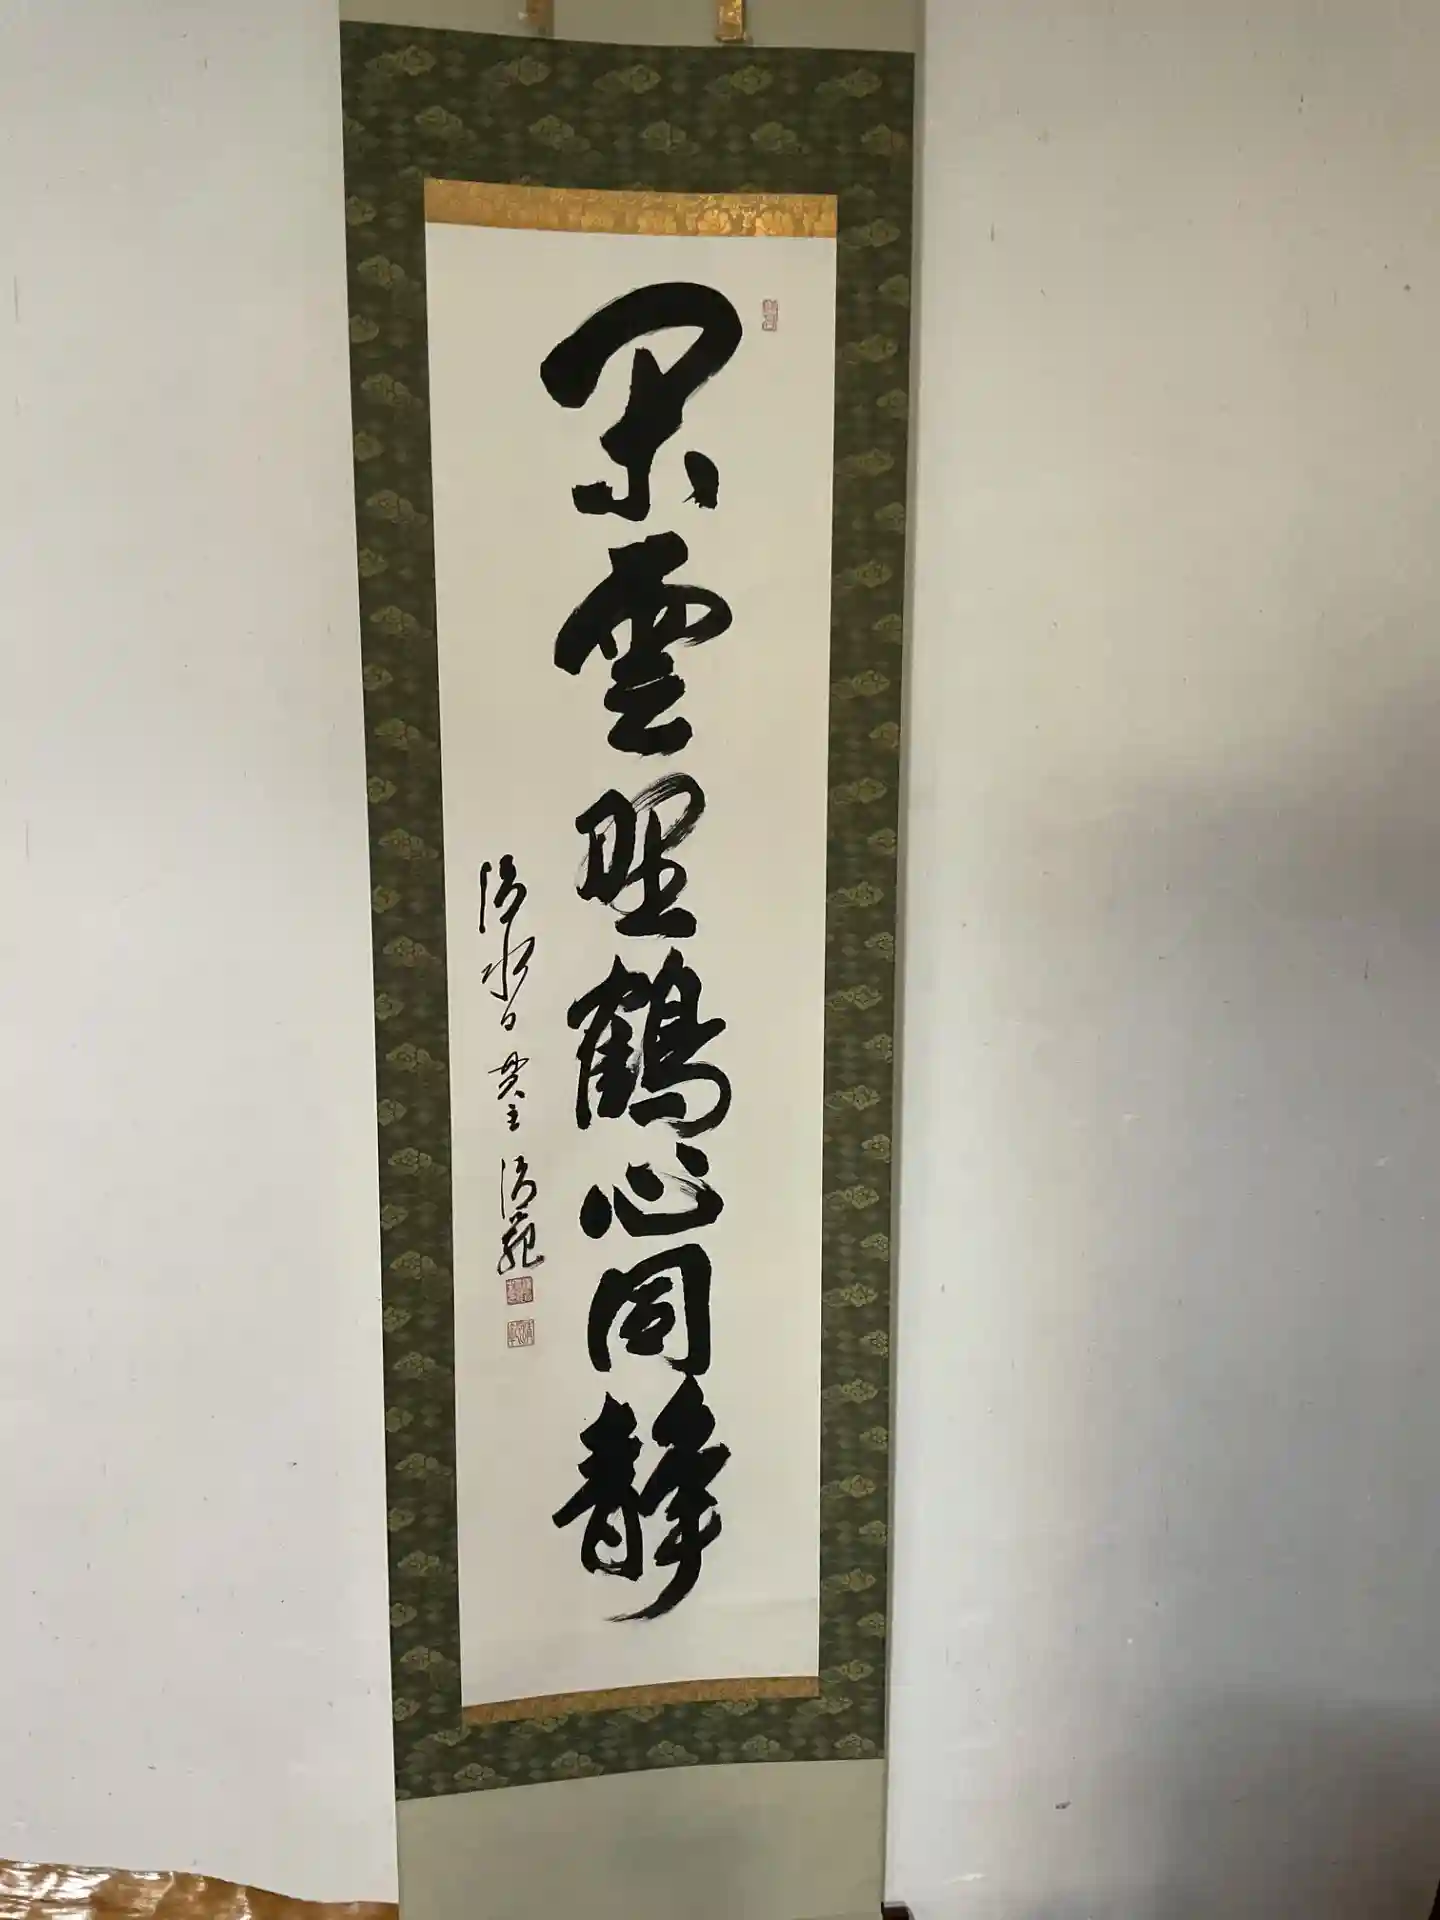 閑雲野鶴心同静
清水貫主清範